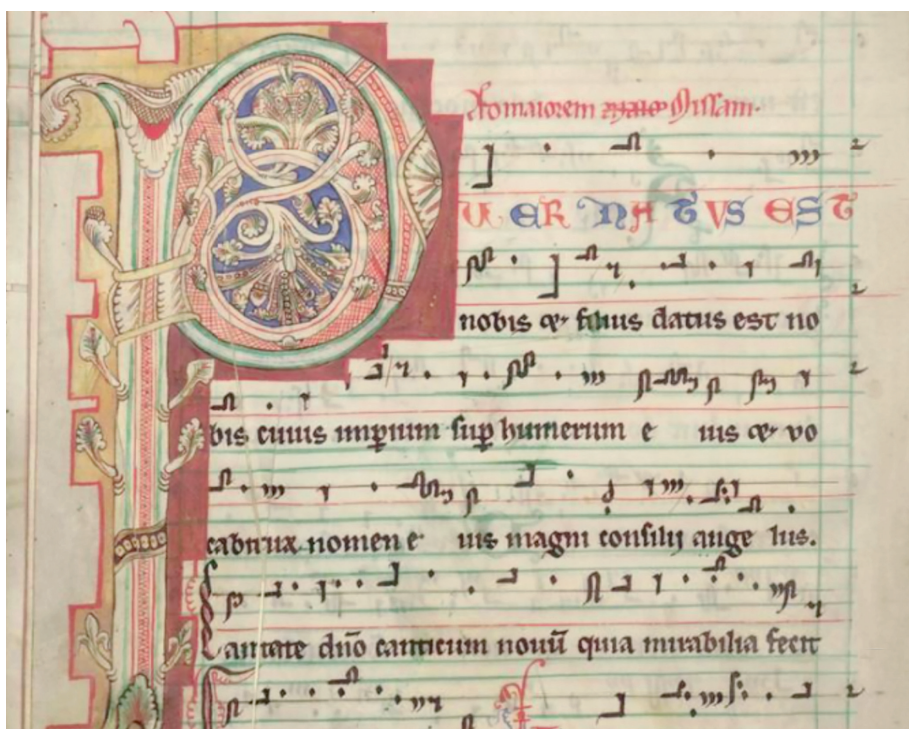 Ad maiorem Missam.
PUER NATUS EST
nobis & filius datus est no
bis cuius imp̲ium sup̲ humerum e ius & vo
cabitur nomen e ius magni consilij ange lus.
Cantate dn̄o canticum nouū quia mirabilia fecit